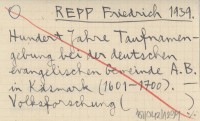 REPP Friedrich 1939.
Hundert Jahre Taufnamen-
gebung bei der deutschen
evangelischen Gemeinde A. B.
in Käsmark (1601-1700).
Volksforschung (